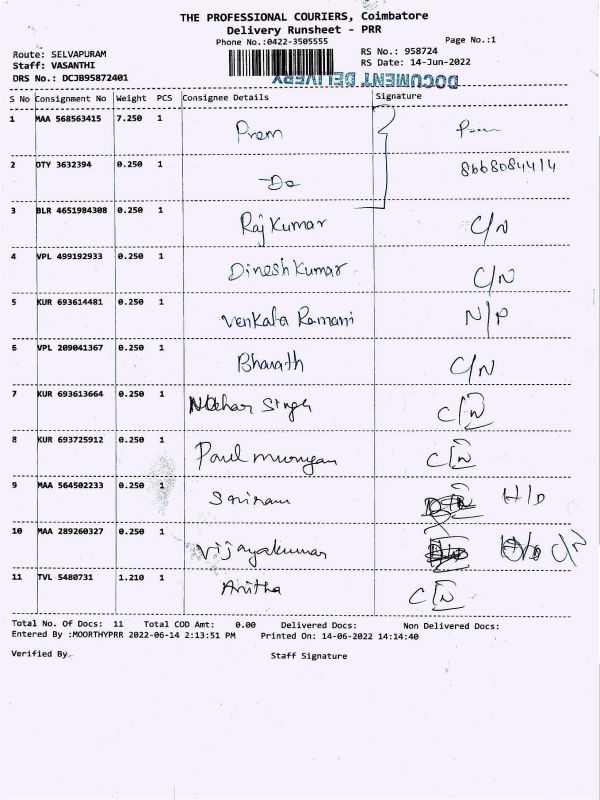 THE PROFESSIONAL COURIERS, Coimbatore
Delivery Runsheet - PRR
Phone No.:0422-3505555
Page No.:1
Route: SELVAPURAM
RS No.: 958724
Staff: VASANTHI
RS Date: 14-Jun-2022
DRS No.: DCJB95872401
DOCUMENT DELIVERY
S No Consignment No Weight PCS Consignee Details Signature
1 MAA 568563415 7.250 1 Prem
2 DTY 3632394 0.250 1 Do 8668084414
3 BLR 4651984308 0.250 1 Raj Kumar C/N
4 VPL 499192933 0.250 1 Dinesh Kumar C/N
5 KUR 693614481 0.250 1 Venkata Ramani N/P
6 VPL 209041367 0.250 1 Bharath C/N
7 KUR 693613664 0.250 1 Singh C/N
8 KUR 693725912 0.250 1 Paul murugan C/N
9 MAA 564502233 0.250 1 Sriram H/D
10 MAA 289260327 0.250 1 Vijayakumar C/N
11 TVL 5480731 1.210 1 Anitha C/N
Total No. Of Docs: 11 Total COD Amt: 0.00 Delivered Docs: Non Delivered Docs:
Entered By :MOORTHYPRR 2022-06-14 2:13:51 PM Printed On: 14-06-2022 14:14:40
Verified By Staff Signature